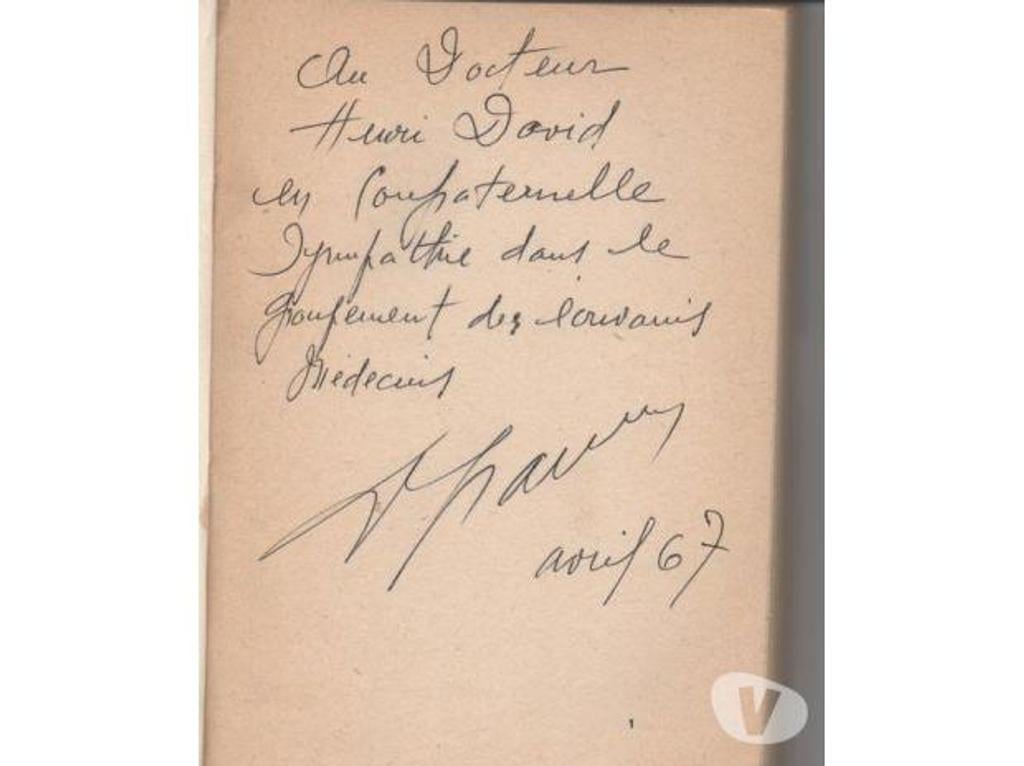 Au Docteur
Henri David
en Confraternelle
Sympathie dans le
groupement des écrivains
Médecins
avril 67
1
V